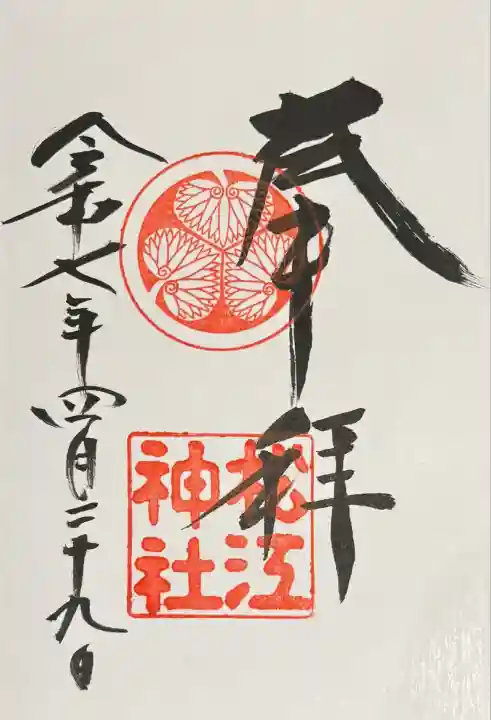 奉拝
松江
神社
令和七年四月二十九日